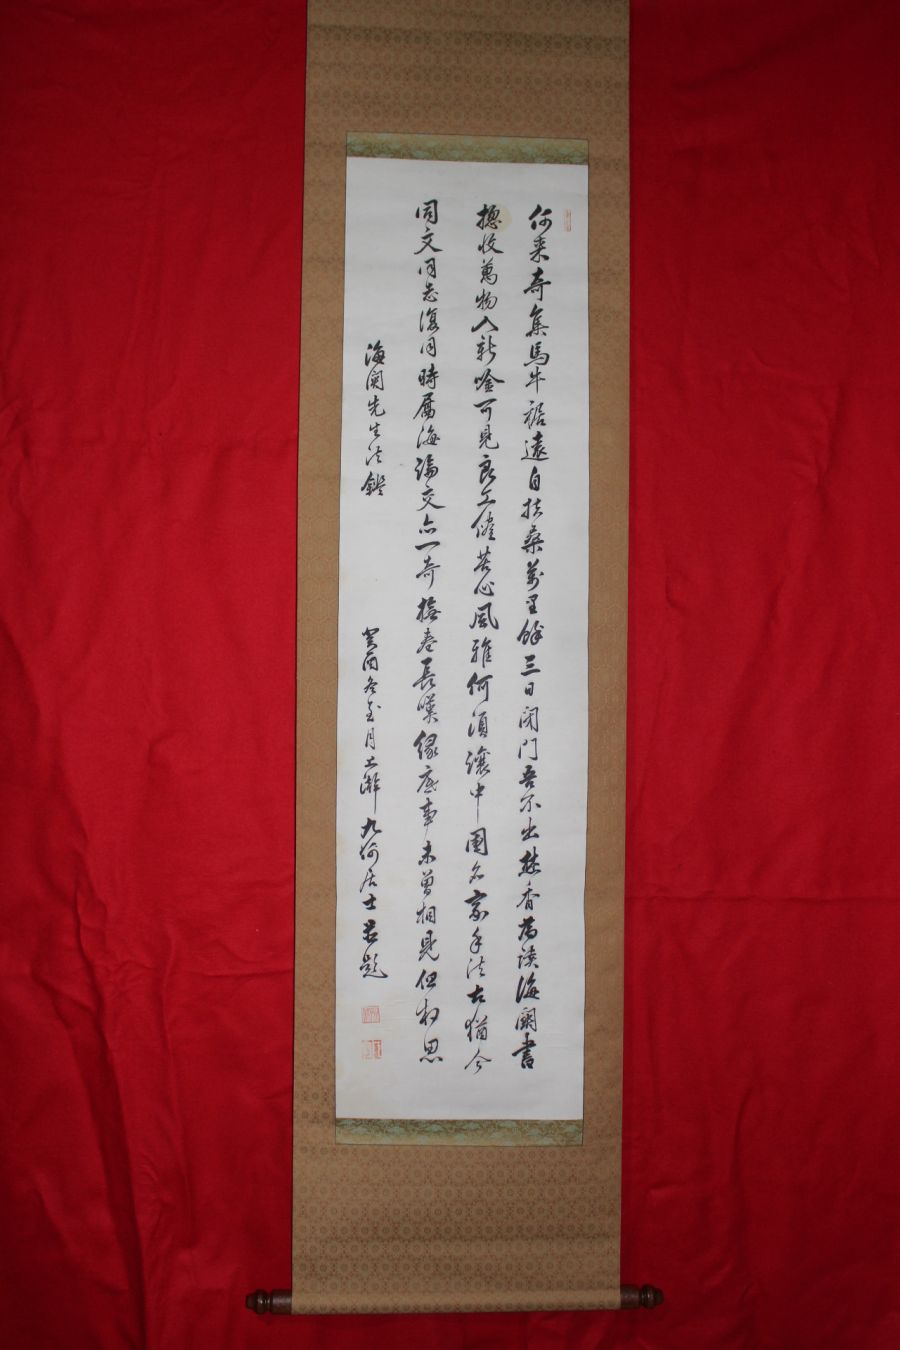 何來奇集馬牛裾遠自扶桑萬里餘三日閉門吾不出焚香為讀海闕書
摠收萬物入新吟可見良工儘苦心風雅何須讓中國名家手法古猶今
同文同志復同時屬海論交亦一奇撫卷長嘆緣底事未曾相見但相思
海闕先生法鑑
癸酉冬至月上澣九何居士呂題